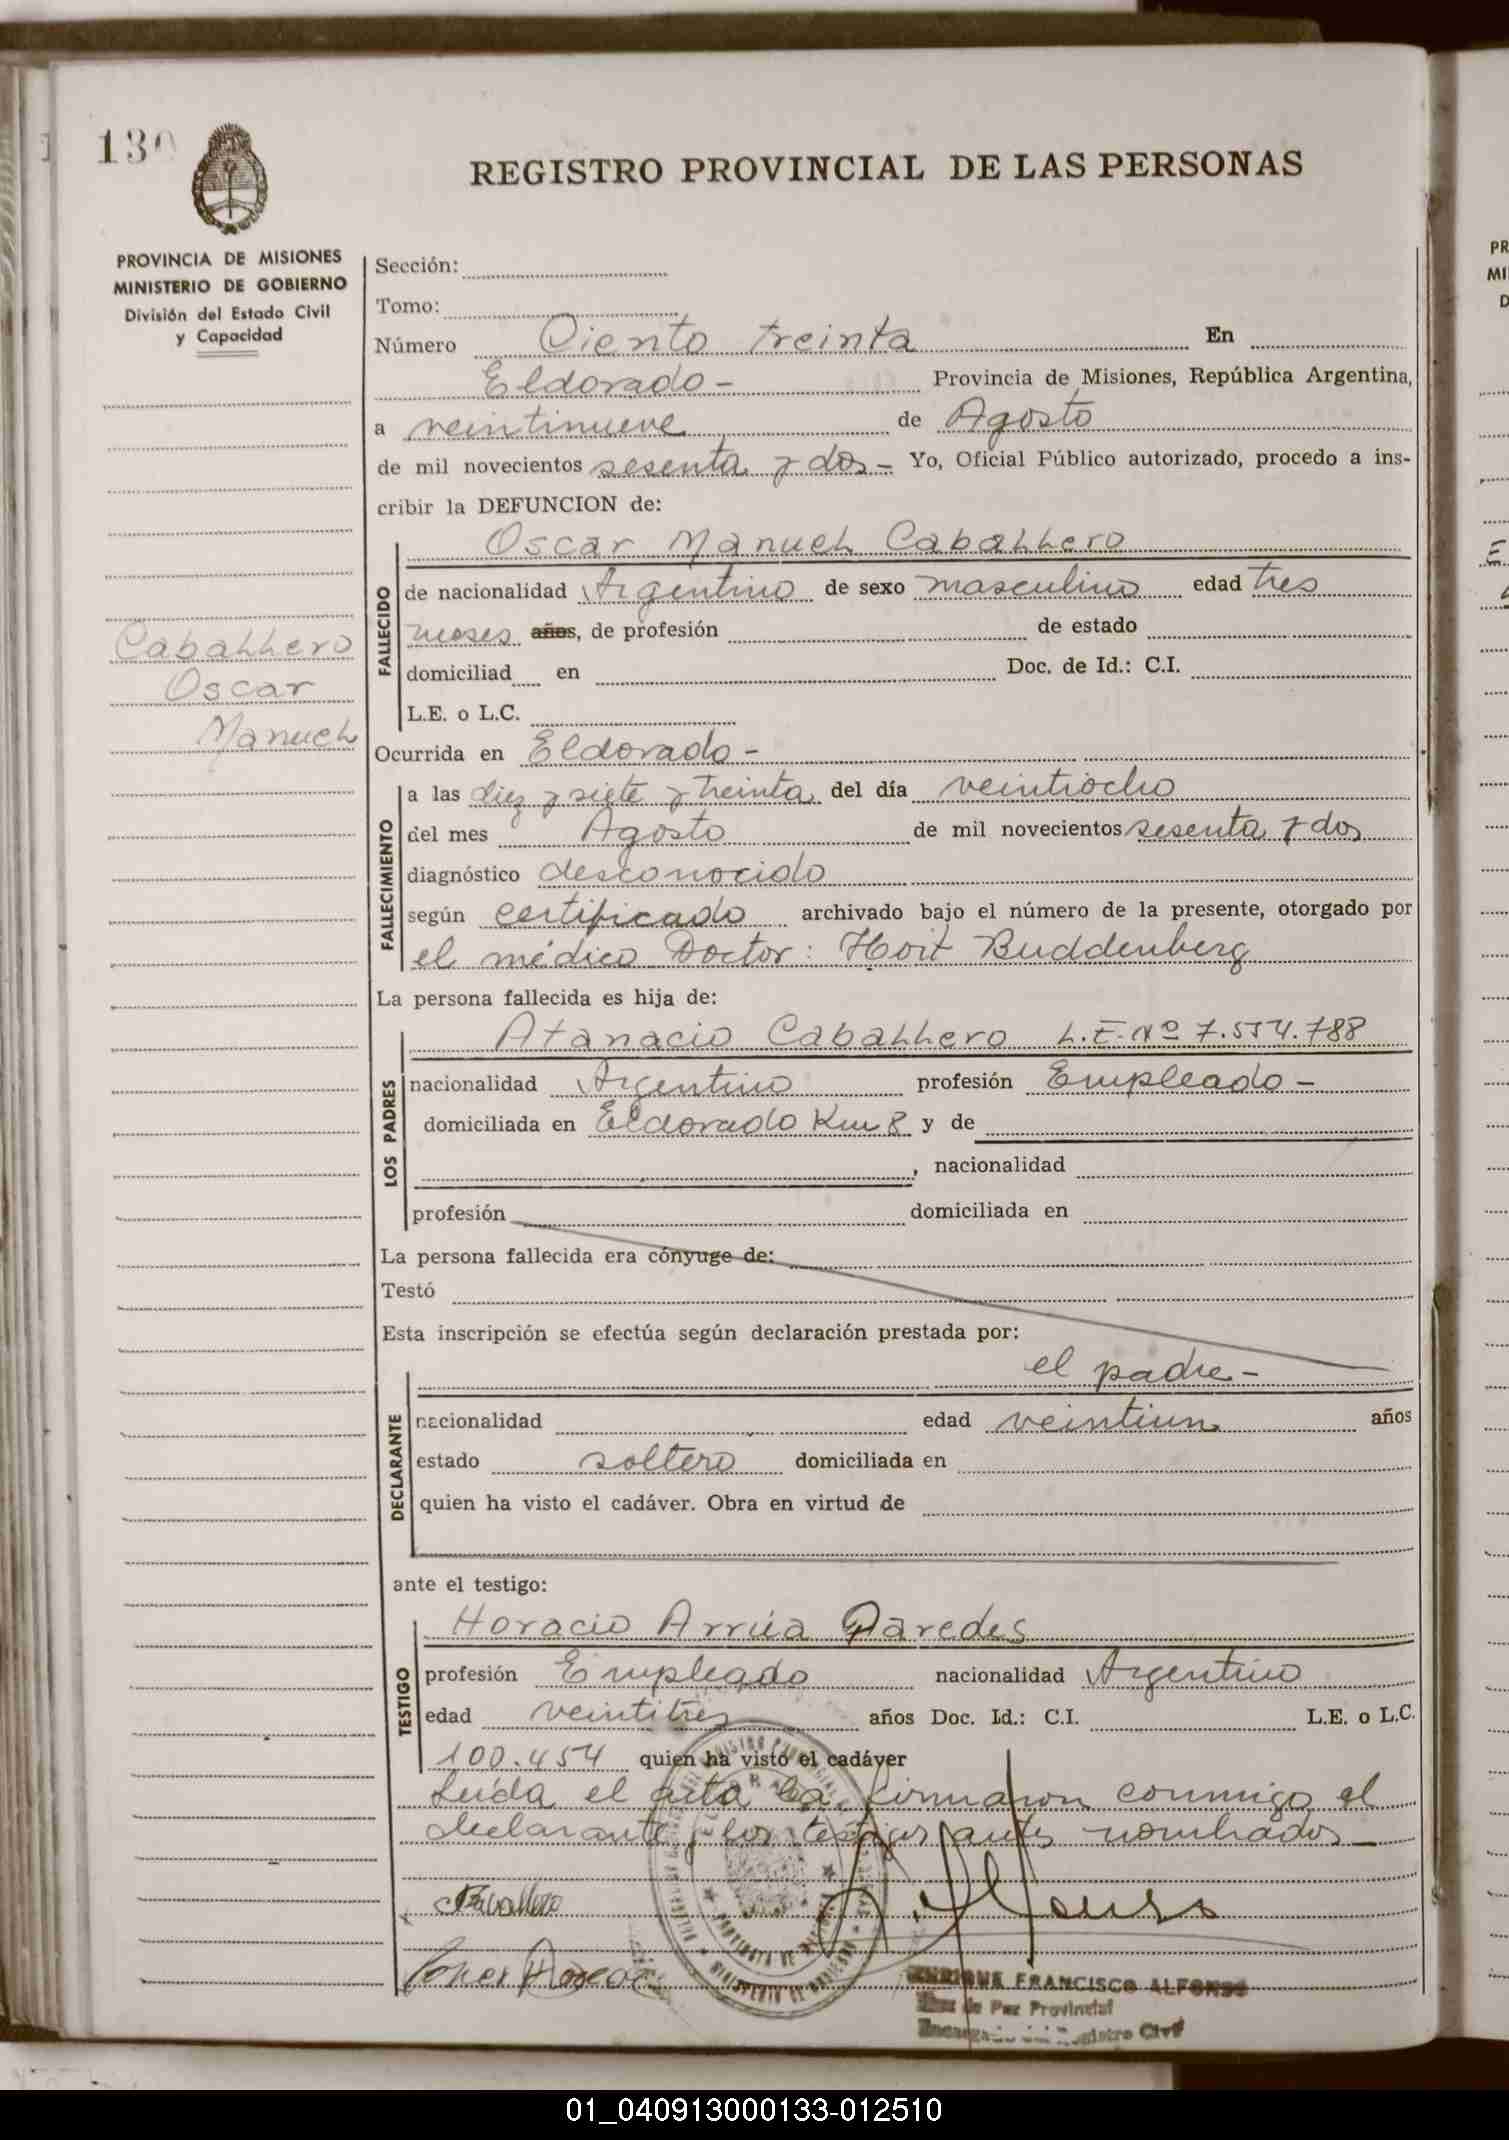 130
REGISTRO PROVINCIAL DE LAS PERSONAS
PROVINCIA DE MISIONES
MINISTERIO DE GOBIERNO
División del Estado Civil
y Capacidad
Caballero
Oscar
Manuel
Sección:
Tomo:
Número Ciento treinta En
Eldorado - Provincia de Misiones, República Argentina,
a veintinueve de Agosto
de mil novecientos sesenta y dos - Yo, Oficial Público autorizado, procedo a ins-
cribir la DEFUNCION de:
FALLECIDO
Oscar Manuel Caballero
de nacionalidad Argentino de sexo masculino edad tres
meses años, de profesión de estado
domiciliad en Doc. de Id.: C.I.
L.E. o L.C.
Ocurrida en Eldorado -
FALLECIMIENTO
a las diez y siete y treinta del día veintiocho
del mes Agosto de mil novecientos sesenta y dos
diagnóstico desconocido
según certificado archivado bajo el número de la presente, otorgado por
el médico Doctor: Buddenberg
La persona fallecida es hija de:
LOS PADRES
Atanacio Caballero L.E. Nº 7.554.788
nacionalidad Argentino profesión Empleado -
domiciliada en Eldorado Km 8 y de
, nacionalidad
profesión domiciliada en
La persona fallecida era cónyuge de:
Testó
Esta inscripción se efectúa según declaración prestada por:
DECLARANTE
el padre -
nacionalidad edad veintiun años
estado soltero domiciliada en
quien ha visto el cadáver. Obra en virtud de
ante el testigo:
TESTIGO
Horacio Arrúa Paredes
profesión Empleado nacionalidad Argentino
edad veintitres años Doc. Id.: C.I. L.E. o L.C.
100.454 quien ha visto el cadáver
Leída el acta la firmaron conmigo el
declarante y los testigos antes nombrados -
Caballero
ENRIQUE FRANCISCO ALFONSO
Juez de Paz Provincial
Encargado del Registro Civil
01_040913000133-012510